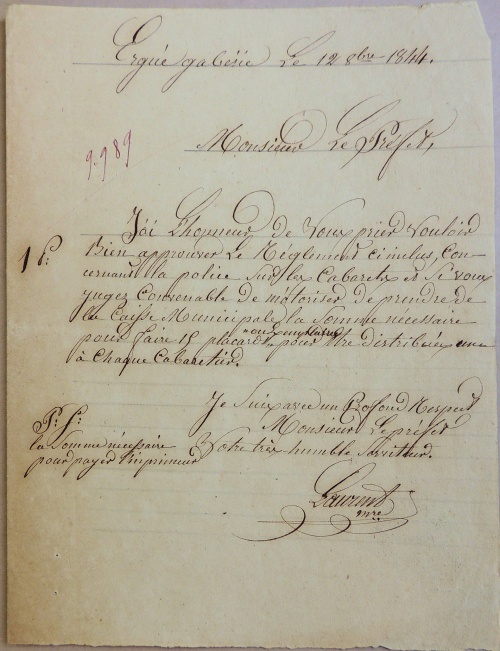 Ergué gabéric Le 12 8bre 1844.
Monsieur Le Préfet,
9.989
J'ai L'honneur, de Vous prier Vouloir
1 P:
Bien approuver Le Réglement ci inclus, Con-
cernant la police Sur les Cabarets et Si vous
jugez Convenable de m'otoriser de prendre de
la Caisse Municipale la Somme nécessaire
pour faire 15 placards "ou exemplaires" pour être distribués une
à Chaque Cabaretier.
Je Suis avec un Profond Respect
Monsieur Le préfet
Votre très humble Serviteur.
P: S:
la Somme nécessaire
pour payer l'imprimeur
Laurent
mre